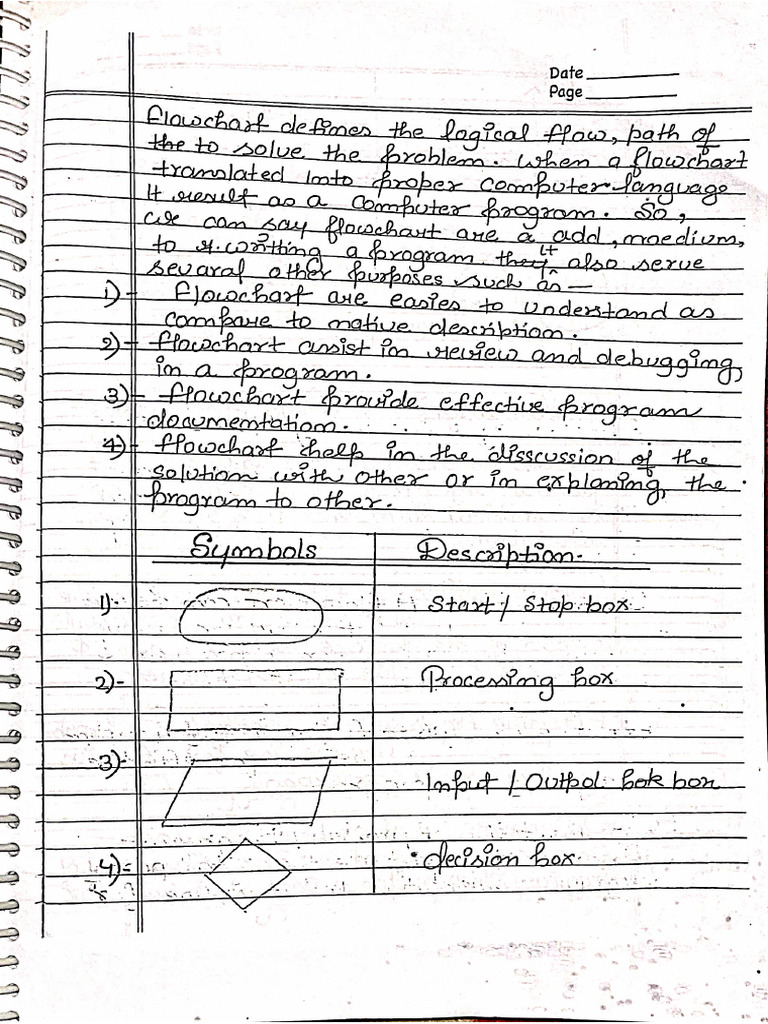 Date
Page
flowchart defines the logical flow, path of
the to solve the problem. When a flowchart
translated into proper computer language
It result as a computer program. So,
we can say flowchart are a add, maedium,
to writting a program they it also serve
sevaral other purposes such as —
1)- flowchart are easies to understand as
compare to native description.
2)- flowchart assist in review and debugging,
in a program.
3)- flowchart provide effective program
documentation.
4)- flowchart help in the disscussion of the
solution with other or in explaning, the
program to other.
Symbols Description
1)- Start / Stop box
2)- Processing box
3)- Input / Outpol bok box
4)- decision box